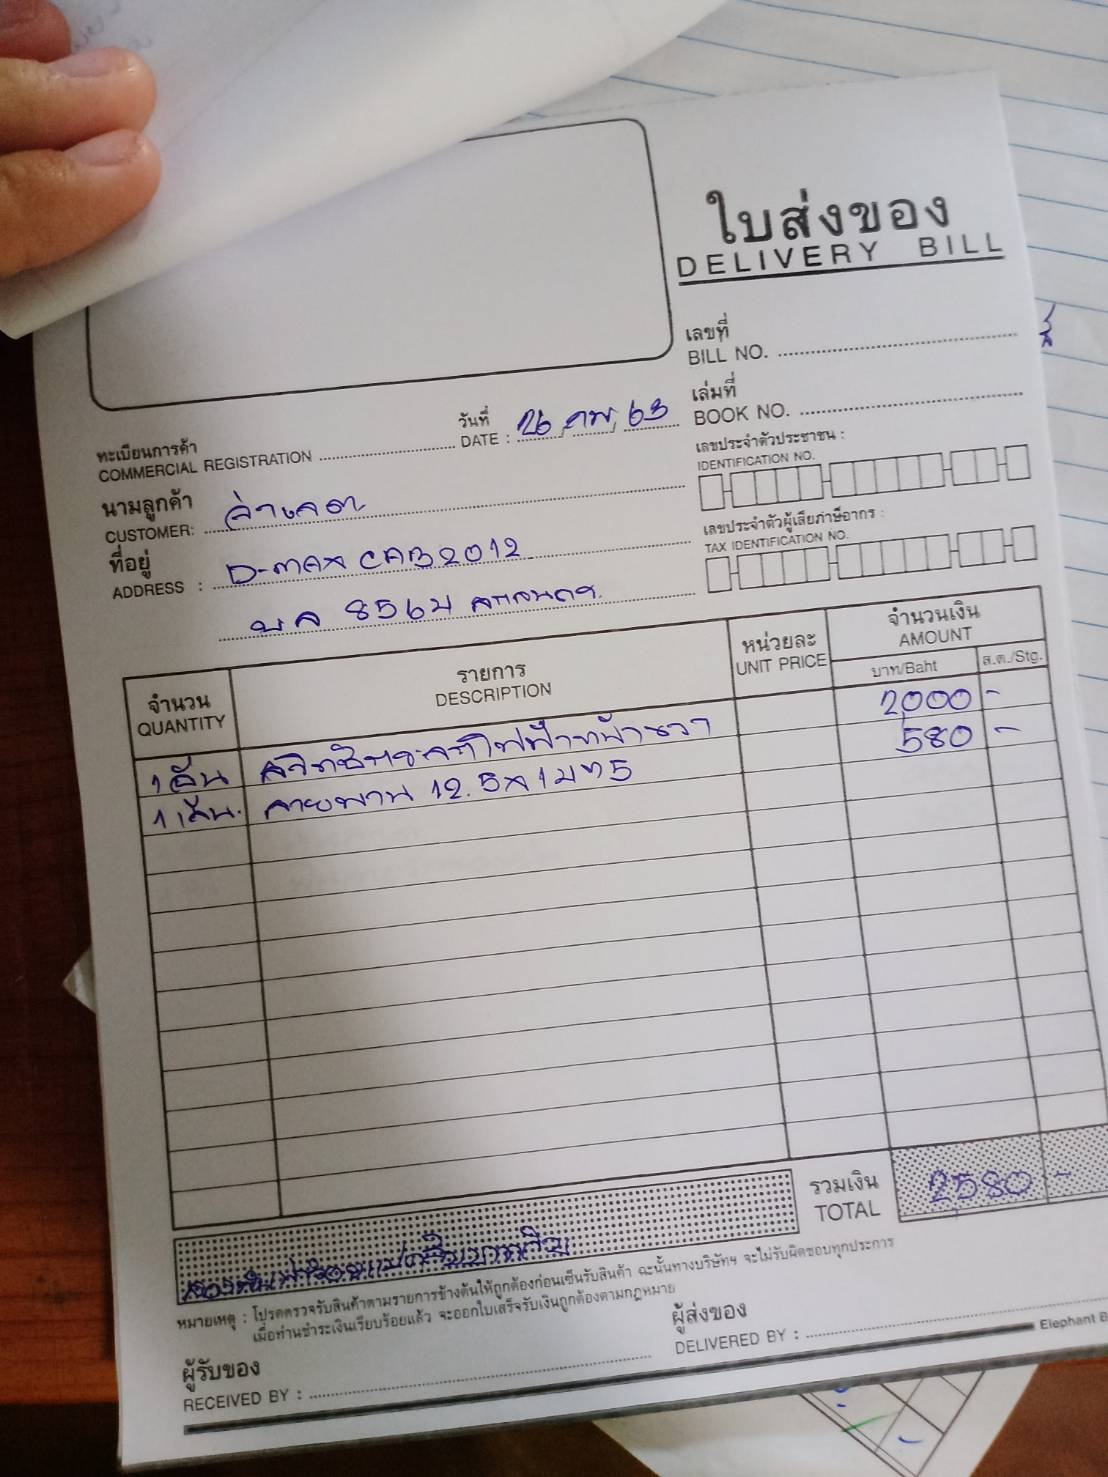 ใบส่งของ
DELIVERY BILL
เลขที่
BILL NO.
เล่มที่
BOOK NO.
วันที่
DATE : 26 กพ, 63
ทะเบียนการค้า
COMMERCIAL REGISTRATION
เลขประจำตัวประชาชน :
IDENTIFICATION NO.
นามลูกค้า
CUSTOMER:
ที่อยู่
ADDRESS : D-max CAB 2012
บล 8564 สกลนคร
เลขประจำตัวผู้เสียภาษีอากร :
TAX IDENTIFICATION NO.
จำนวน
QUANTITY
รายการ
DESCRIPTION
หน่วยละ
UNIT PRICE
จำนวนเงิน
AMOUNT
บาท/Baht
ส.ต./Stg.
1 อัน สวิทช์ยกกระจกไฟฟ้าหน้าขวา 2000 -
1 เส้น. สายพาน 12.5 x 1 580 -
รวมเงิน
TOTAL
2580 -
หมายเหตุ : โปรดตรวจรับสินค้าตามรายการข้างต้นให้ถูกต้องก่อนเซ็นรับสินค้า ฉะนั้นทางบริษัทฯ จะไม่รับผิดชอบทุกประการ
เมื่อท่านชำระเงินเรียบร้อยแล้ว จะออกใบเสร็จรับเงินถูกต้องตามกฎหมาย
ผู้รับของ
RECEIVED BY :
ผู้ส่งของ
DELIVERED BY :
Elephant B